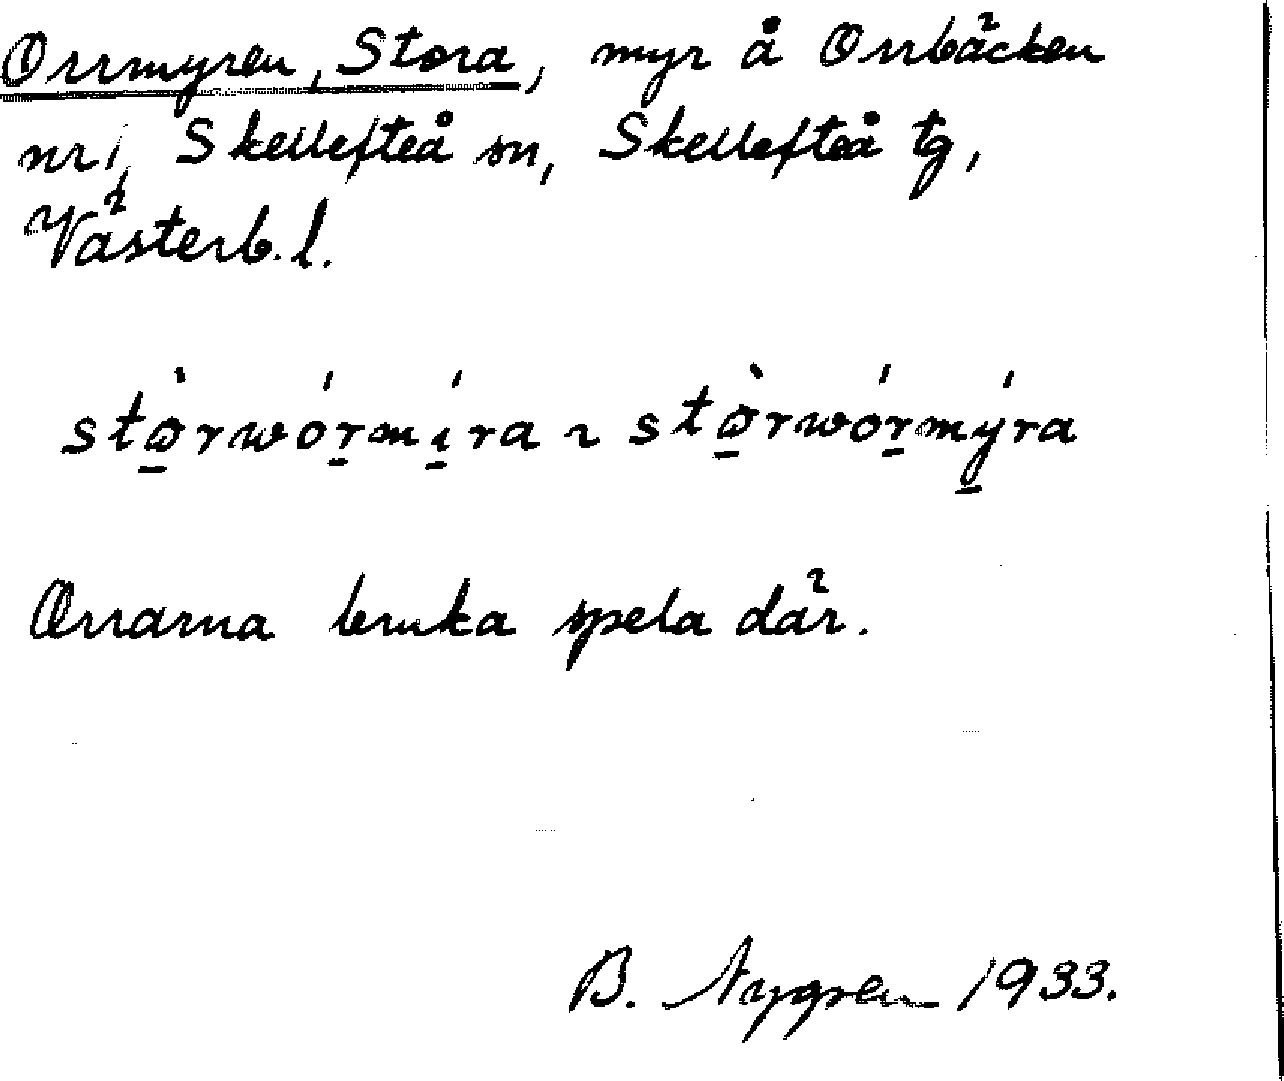 Orrmyren, Stora, myr å Orrbäcken
nr 1, Skellefteå sn, Skellefteå tg,
Västerb. l.
stø̠̀rwór̠mí̠ra ~ stø̠̀rwór̠mý̠ra
Orrarna bruka spela där.
B. Nygren 1933.